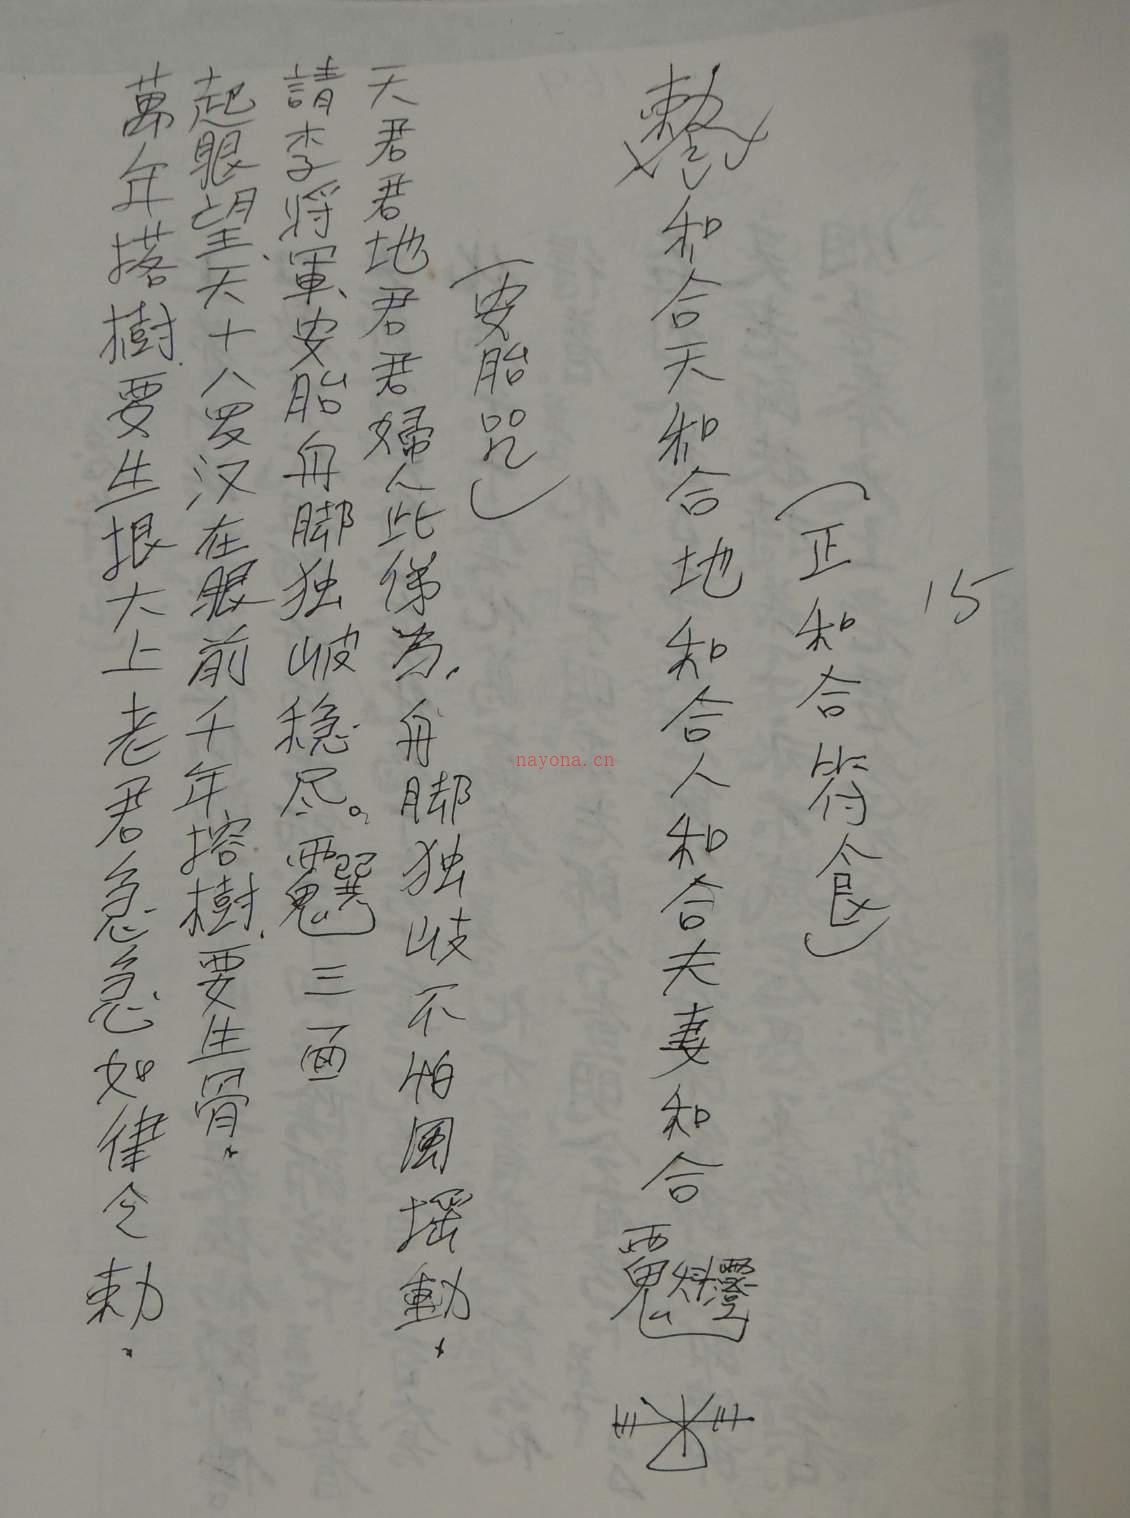 15
（正和合符食）
敕令和合天和合地和合人和合夫妻和合
（安胎咒）
天君君地君君婦人此俤為.舟脚独岐不怕風摇動.
請李将軍、安胎舟脚独岐稳尽。三面
起眼望天十八罗汉在眼前千年榕樹.要生骨.
萬年搭樹.要生拫大上老君急急如律令勅.
nayona.cn